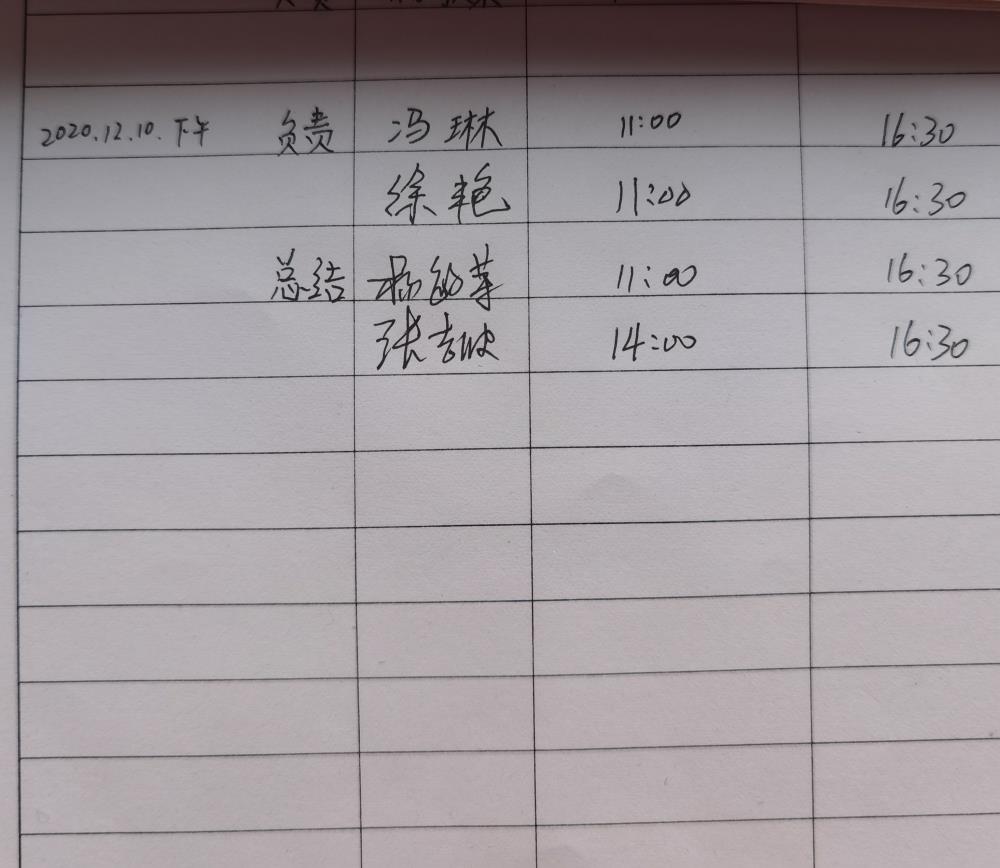 2020.12.10.下午 负责 冯琳 11:00 16:30
徐艳 11:00 16:30
总结 杨 11:00 16:30
张 14:00 16:30